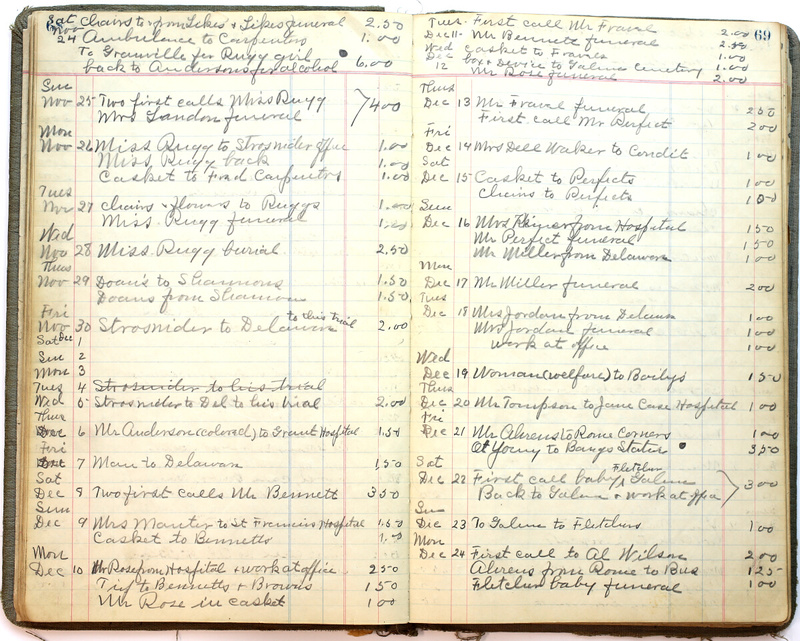 Sat Chairs to + from Likes + Likes funeral 2.50
Nov
24 Ambulance to Carpenters 1.00
To Granville for Rugg girl
back to Andersons for alcohol 6.00
Sun
Nov 25 Two first calls Miss Rugg
Mrs Landon funeral 400
Mon
Nov 26 Miss Rugg to Strosnider office 1.00
Miss Rugg back 1.00
Casket to Fred Carpenters 1.00
Tues
Nov 27 Chairs + flowers to Ruggs 1.00
Miss. Rugg funeral 1.00
Wed
Nov 28 Miss Rugg burial 2.50
Thurs
Nov 29 Doans to Shannons 1.50
Doans from Shannons 1.50
Fri to this trial
Nov 30 Strosnider to Delaware 2.00
Sat Dec 1
Sun 2
Mon 3
Tues 4 Strosnider to his trial
Wed 5 Strosnider to Del to his trial 2.00
Thur
Dec 6 Mr Anderson (colored) to Grant Hospital 1.50
Fri
Dec 7 Man to Delaware 1.50
Sat
Dec 8 Two first calls Mr Bennett 350
Sun
Dec 9 Mrs Manter to St Francis Hospital 1.50
Casket to Bennetts
Mon
Dec 10 Mr Rose from Hospital + work at office 250
Trip to Bennetts + Browns 150
Mr Rose in casket 100
69
Tues First call Mr Fravel 2.00
Dec 11 Mr Bennett funeral 2.50
Wed Casket to Fravels 1.00
Dec box + Device to Galena Cemetery 1.00
12 Mr Rose funeral 2.00
Thus
Dec 13 Mr Fravel funeral 250
First call Mr Perfect 200
Fri
Dec 14 Mrs Dell Waker to Condit 100
Sat
Dec 15 Casket to Perfects 100
Chairs to Perfects 150
Sun
Dec 16 Mrs from Hospital 150
Mr Perfect funeral 150
Mr Miller from Delaware 100
Mon
Dec 17 Mr Miller funeral 200
Tues
Dec 18 Mrs Jordan from Delaware 100
Mrs Jordan funeral 100
work at office 100
Wed
Dec 19 Woman (welfare) to Bailys 150
Thus
Dec 20 Mr Tompson to Jane Case Hospital 100
Fri
Dec 21 Mr Ahrens to Rome Corners 100
Al Young to Bangs Station 350
Sat Fletcher
Dec 22 First call baby Galena
Back to Galena + work at office 300
Sun
Dec 23 To Galena to Fletchers 100
Mon
Dec 24 First call to Al Wilson 200
Ahrens from Rome to Bus 125
Fletcher baby funeral 100